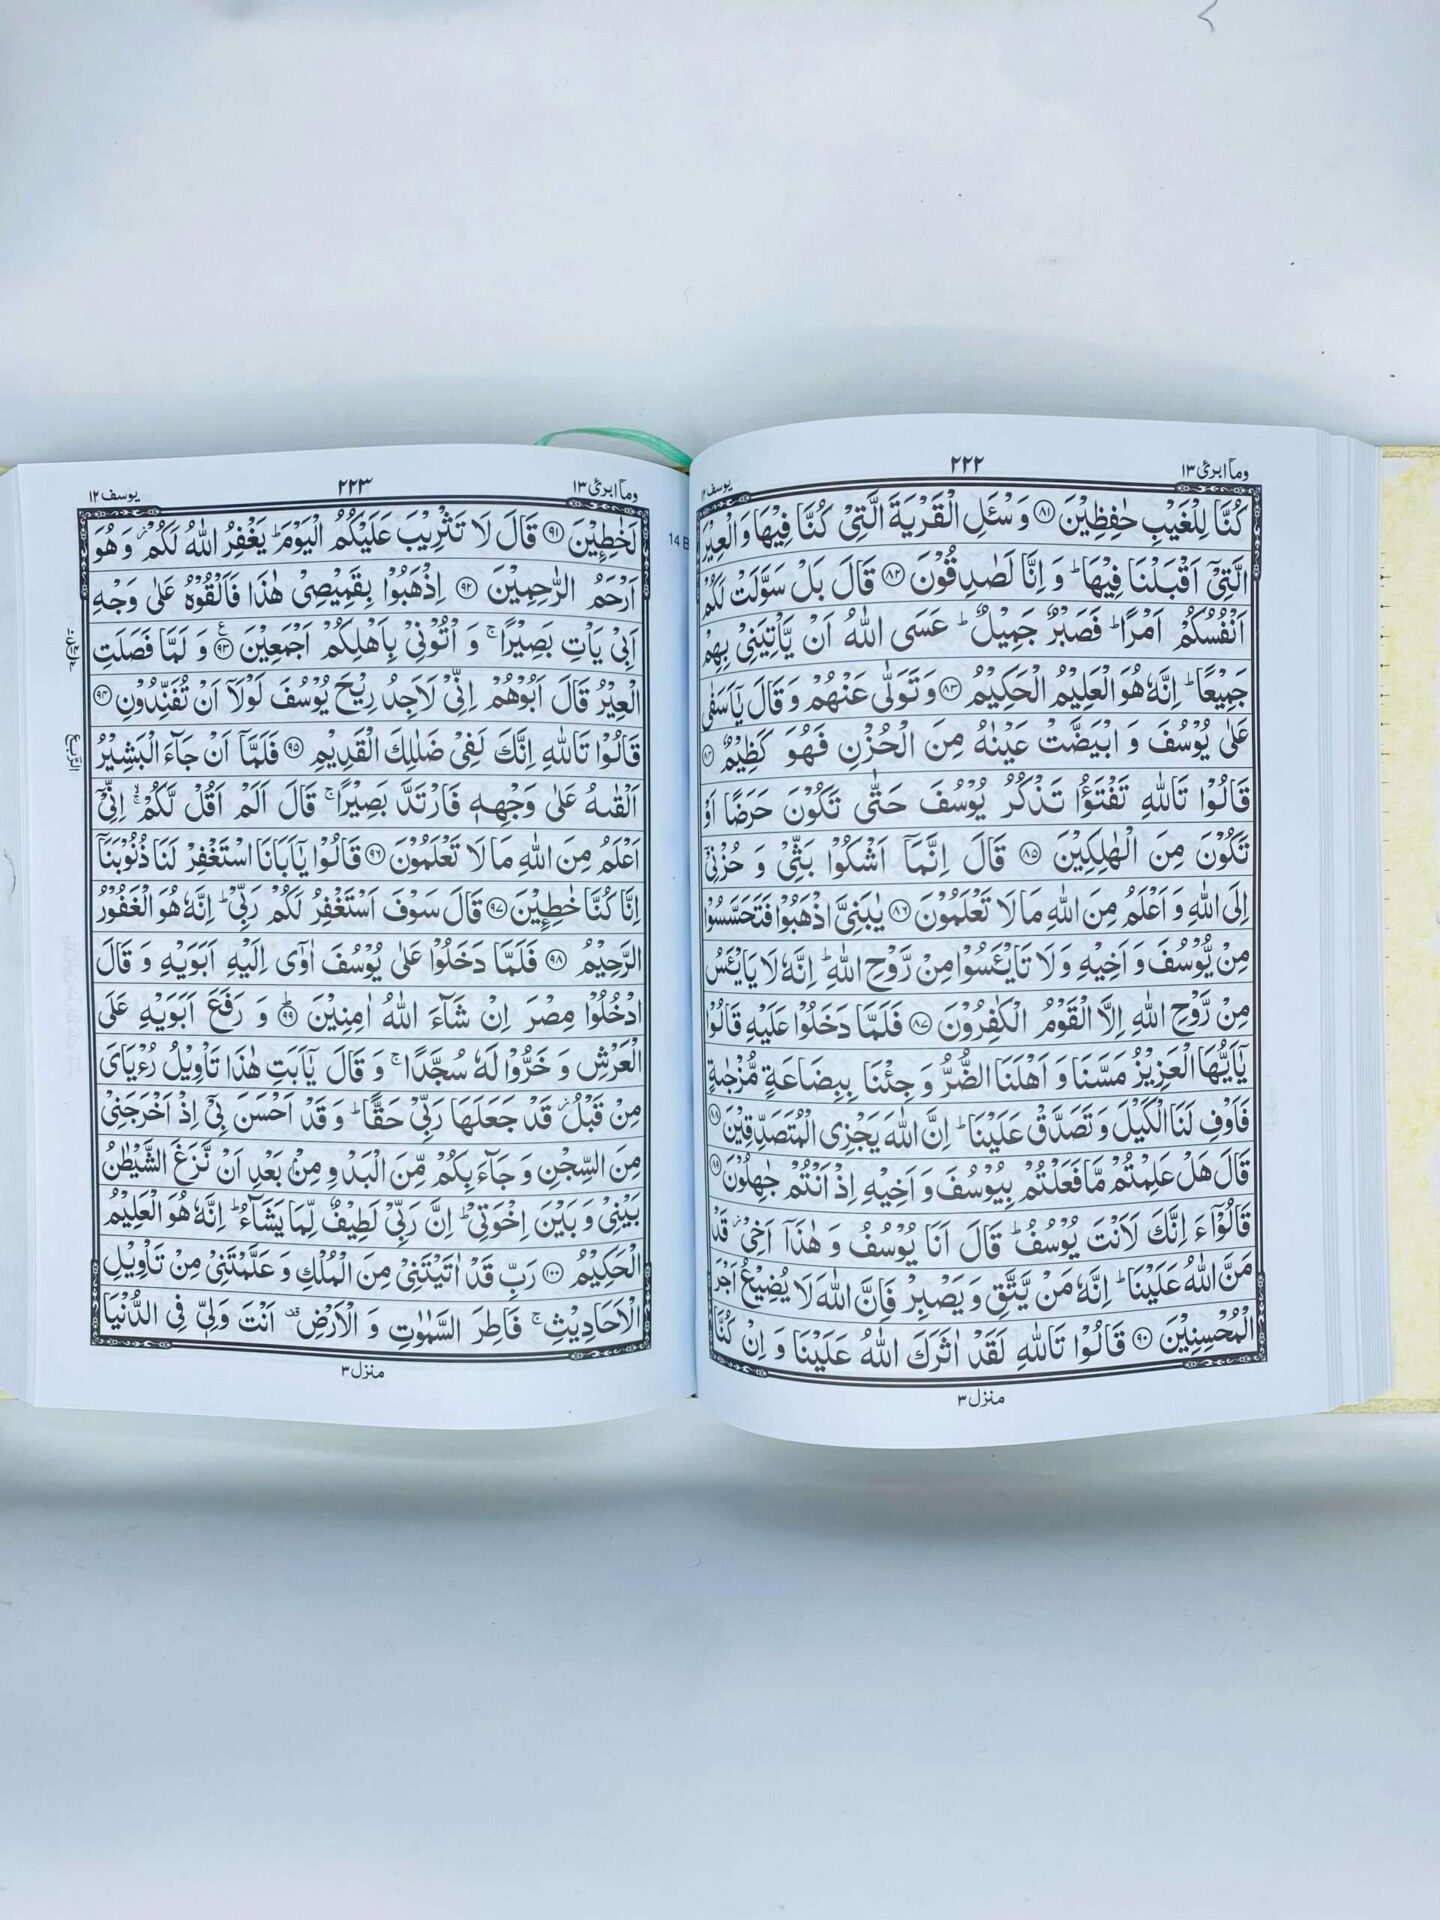 وما ابرئ ١٣
٢٢٢
يوسف ١٢
كُنَّا لِلْغَيْبِ حٰفِظِيْنَ ﴿۸۱﴾ وَ سْـَٔلِ الْقَرْيَةَ الَّتِيْ كُنَّا فِيْهَا وَ الْعِيْرَ
الَّتِيْۤ اَقْبَلْنَا فِيْهَا ؕ وَ اِنَّا لَصٰدِقُوْنَ ﴿۸۲﴾ قَالَ بَلْ سَوَّلَتْ لَكُمْ
اَنْفُسُكُمْ اَمْرًا ؕ فَصَبْرٌ جَمِيْلٌ ؕ عَسَى اللّٰهُ اَنْ يَّاْتِيَنِيْ بِهِمْ
جَمِيْعًا ؕ اِنَّهٗ هُوَ الْعَلِيْمُ الْحَكِيْمُ ﴿۸۳﴾ وَ تَوَلّٰى عَنْهُمْ وَ قَالَ يٰۤاَسَفٰى
عَلٰى يُوْسُفَ وَ ابْيَضَّتْ عَيْنٰهُ مِنَ الْحُزْنِ فَهُوَ كَظِيْمٌ ﴿۸۴﴾
قَالُوْا تَاللّٰهِ تَفْتَؤُا تَذْكُرُ يُوْسُفَ حَتّٰى تَكُوْنَ حَرَضًا اَوْ
تَكُوْنَ مِنَ الْهٰلِكِيْنَ ﴿۸۵﴾ قَالَ اِنَّمَاۤ اَشْكُوْا بَثِّيْ وَ حُزْنِيْۤ
اِلَى اللّٰهِ وَ اَعْلَمُ مِنَ اللّٰهِ مَا لَا تَعْلَمُوْنَ ﴿۸۶﴾ يٰبَنِيَّ اذْهَبُوْا فَتَحَسَّسُوْا
مِنْ يُّوْسُفَ وَ اَخِيْهِ وَ لَا تَايْـَٔسُوْا مِنْ رَّوْحِ اللّٰهِ ؕ اِنَّهٗ لَا يَايْـَٔسُ
مِنْ رَّوْحِ اللّٰهِ اِلَّا الْقَوْمُ الْكٰفِرُوْنَ ﴿۸۷﴾ فَلَمَّا دَخَلُوْا عَلَيْهِ قَالُوْا
يٰۤاَيُّهَا الْعَزِيْزُ مَسَّنَا وَ اَهْلَنَا الضُّرُّ وَ جِئْنَا بِبِضَاعَةٍ مُّزْجٰىةٍ
فَاَوْفِ لَنَا الْكَيْلَ وَ تَصَدَّقْ عَلَيْنَا ؕ اِنَّ اللّٰهَ يَجْزِي الْمُتَصَدِّقِيْنَ ﴿۸۸﴾
قَالَ هَلْ عَلِمْتُمْ مَّا فَعَلْتُمْ بِيُوْسُفَ وَ اَخِيْهِ اِذْ اَنْتُمْ جٰهِلُوْنَ ﴿۸۹﴾
قَالُوْۤا ءَاِنَّكَ لَاَنْتَ يُوْسُفُ ؕ قَالَ اَنَا يُوْسُفُ وَ هٰذَاۤ اَخِيْ ؗ قَدْ
مَنَّ اللّٰهُ عَلَيْنَا ؕ اِنَّهٗ مَنْ يَّتَّقِ وَ يَصْبِرْ فَاِنَّ اللّٰهَ لَا يُضِيْعُ اَجْرَ
الْمُحْسِنِيْنَ ﴿۹۰﴾ قَالُوْا تَاللّٰهِ لَقَدْ اٰثَرَكَ اللّٰهُ عَلَيْنَا وَ اِنْ كُنَّا
منزل ٣
وما ابرئ ١٣
٢٢٣
يوسف ١٢
لَخٰطِـِٕيْنَ ﴿۹۱﴾ قَالَ لَا تَثْرِيْبَ عَلَيْكُمُ الْيَوْمَ ؕ يَغْفِرُ اللّٰهُ لَكُمْ ؗ وَ هُوَ
اَرْحَمُ الرّٰحِمِيْنَ ﴿۹۲﴾ اِذْهَبُوْا بِقَمِيْصِيْ هٰذَا فَاَلْقُوْهُ عَلٰى وَجْهِ
اَبِيْ يَاْتِ بَصِيْرًا ۚ وَ اْتُوْنِيْ بِاَهْلِكُمْ اَجْمَعِيْنَ ﴿۹۳﴾ وَ لَمَّا فَصَلَتِ
الْعِيْرُ قَالَ اَبُوْهُمْ اِنِّيْ لَاَجِدُ رِيْحَ يُوْسُفَ لَوْلَاۤ اَنْ تُفَنِّدُوْنِ ﴿۹۴﴾
قَالُوْا تَاللّٰهِ اِنَّكَ لَفِيْ ضَلٰلِكَ الْقَدِيْمِ ﴿۹۵﴾ فَلَمَّاۤ اَنْ جَآءَ الْبَشِيْرُ
اَلْقٰىهُ عَلٰى وَجْهِهٖ فَارْتَدَّ بَصِيْرًا ۚ قَالَ اَلَمْ اَقُلْ لَّكُمْ ۙ اِنِّيْۤ
اَعْلَمُ مِنَ اللّٰهِ مَا لَا تَعْلَمُوْنَ ﴿۹۶﴾ قَالُوْا يٰۤاَبَانَا اسْتَغْفِرْ لَنَا ذُنُوْبَنَاۤ
اِنَّا كُنَّا خٰطِـِٕيْنَ ﴿۹۷﴾ قَالَ سَوْفَ اَسْتَغْفِرُ لَكُمْ رَبِّيْ ؕ اِنَّهٗ هُوَ الْغَفُوْرُ
الرَّحِيْمُ ﴿۹۸﴾ فَلَمَّا دَخَلُوْا عَلٰى يُوْسُفَ اٰوٰۤى اِلَيْهِ اَبَوَيْهِ وَ قَالَ
ادْخُلُوْا مِصْرَ اِنْ شَآءَ اللّٰهُ اٰمِنِيْنَ ﴿۹۹﴾ؕ وَ رَفَعَ اَبَوَيْهِ عَلَى
الْعَرْشِ وَ خَرُّوْا لَهٗ سُجَّدًا ۚ وَ قَالَ يٰۤاَبَتِ هٰذَا تَاْوِيْلُ رُءْيَايَ
مِنْ قَبْلُ ؗ قَدْ جَعَلَهَا رَبِّيْ حَقًّا ؕ وَ قَدْ اَحْسَنَ بِيْۤ اِذْ اَخْرَجَنِيْ
مِنَ السِّجْنِ وَ جَآءَ بِكُمْ مِّنَ الْبَدْوِ مِنْۢ بَعْدِ اَنْ نَّزَغَ الشَّيْطٰنُ
بَيْنِيْ وَ بَيْنَ اِخْوَتِيْ ؕ اِنَّ رَبِّيْ لَطِيْفٌ لِّمَا يَشَآءُ ؕ اِنَّهٗ هُوَ الْعَلِيْمُ
الْحَكِيْمُ ﴿۱۰۰﴾ رَبِّ قَدْ اٰتَيْتَنِيْ مِنَ الْمُلْكِ وَ عَلَّمْتَنِيْ مِنْ تَاْوِيْلِ
الْاَحَادِيْثِ ۚ فَاطِرَ السَّمٰوٰتِ وَ الْاَرْضِ ۫ اَنْتَ وَلِيّٖ فِي الدُّنْيَا
الربع
منزل ٣